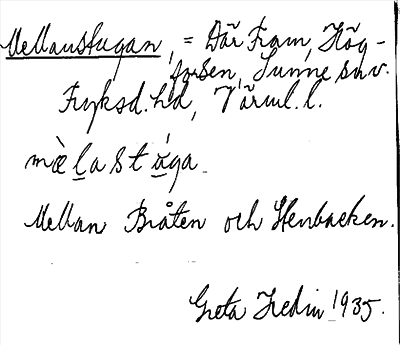 Mellanstugan, = Där Fram, Hög-
forsen, Sunne snv.
Fryksd. hd, Värml. l.
mæ̀lastúga.
Mellan Bråten och Stenbacken.
Greta Hedin 1935.